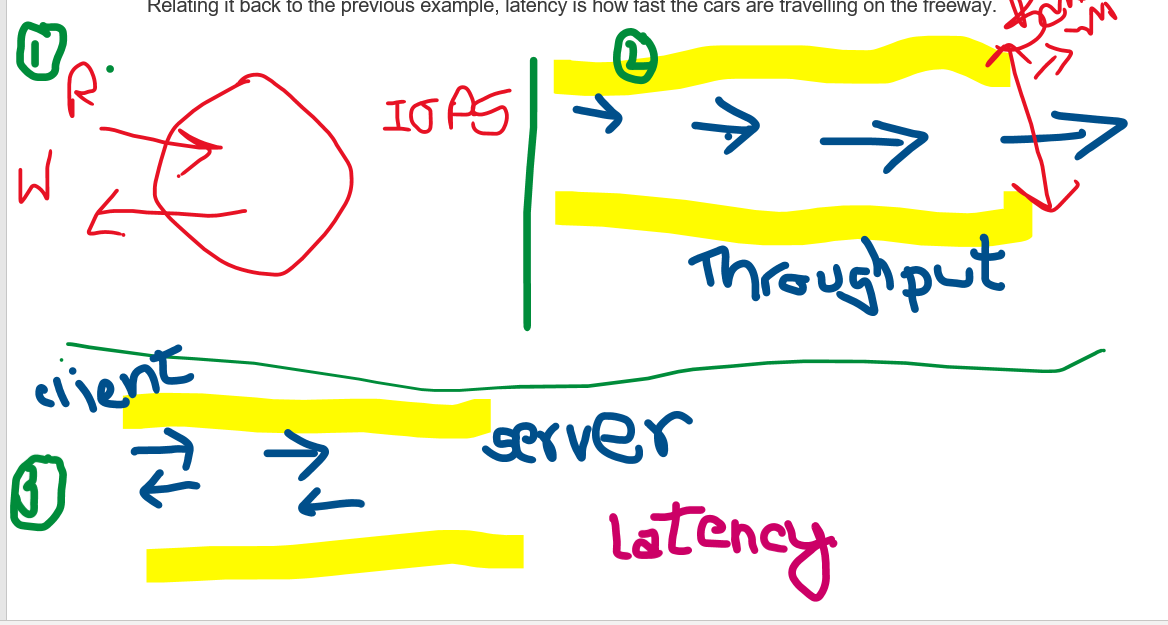 Relating it back to the previous example, latency is how fast the cars are travelling on the freeway.
1
R
W
IOPS
2
Throughput
client
server
3
Latency